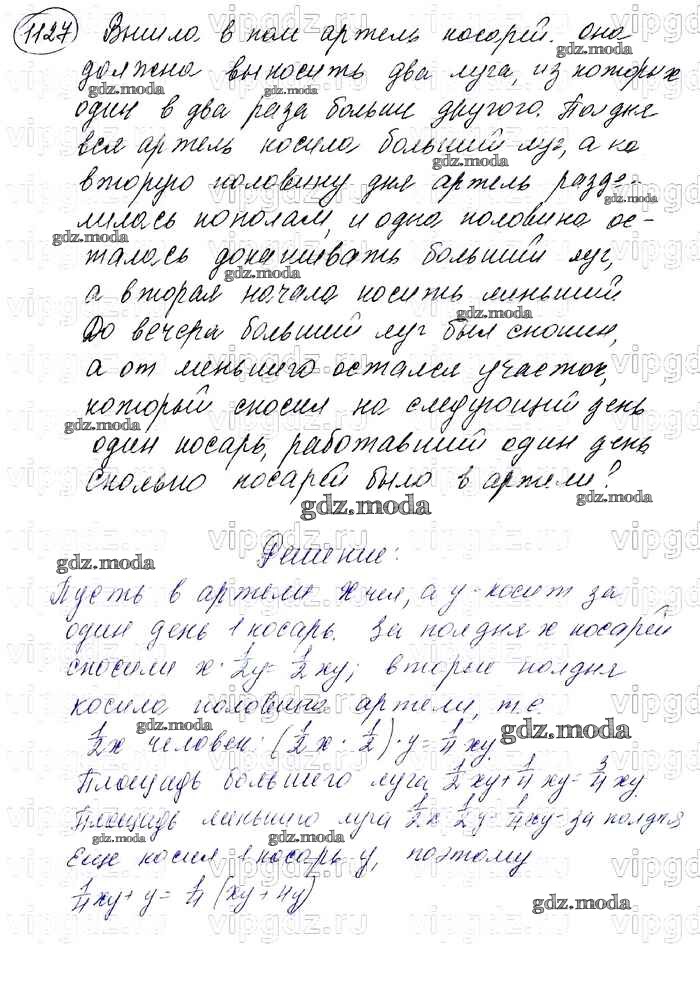 1127 Вышла в поле артель косарей. она
должна выкосить два луга, из которых
один в два раза больше другого. Полдня
вся артель косила больший луг, а на
вторую половину дня артель разде-
лилась пополам, и одна половина ос-
талась докашивать больший луг,
а вторая начала косить меньший
До вечера больший луг был скошен,
а от меньшего остался участок,
который скосил на следующий день
один косарь, работавший один день
Сколько косарей было в артели?
Решение:
Пусть в артели x чел, а y- косит за
один день 1 косарь. За полдня x косарей
скосили x · 1/2y = 1/2xy; вторые полдня
косила половина артели, т.е
1/2x человек: (1/2x · 1/2) · y = 1/4xy
Площадь большего луга 1/2xy + 1/4xy = 3/4xy.
Площадь меньшего луга 1/2x · 1/2y = 1/4xy - за полдня
Еще косил 1 косарь y, поэтому
1/4xy + y = 1/4(xy + 4y)
gdz.moda
vipgdz.ru